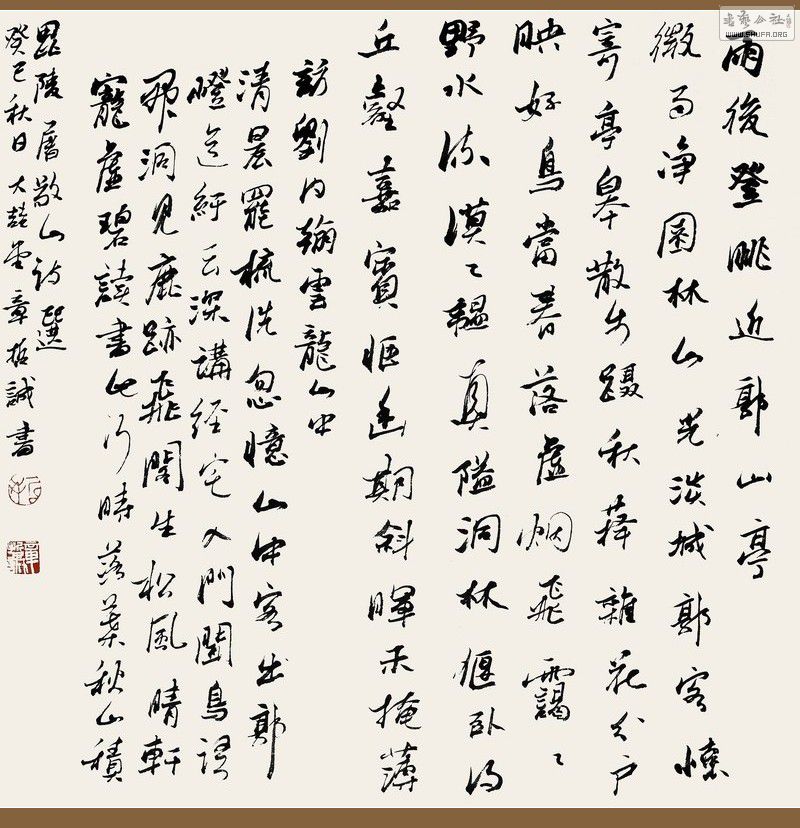 雨後登眺近郭山亭
微雨净園林山光淡城郭客懷
寄亭皋散步蹑秋萚雜花分户
映好鳥當落虛烟飛靄〻
野水流漠〻韞真隘洞林偃卧得
丘壑嘉賓惬幽期斜暉未掩薄
訪劉内翰雲龍山中
清晨罷梳洗忽憶山中客出郭
磴道紆云深講經宅入門闻鳥語
洞見鹿跡飛閣生松風晴軒
虛碧讀書此何時落葉秋山積
毘陵屠敬山詩選
癸巳秋日大堂章哲誠書
書藝公社
WWW.SHUFA.ORG